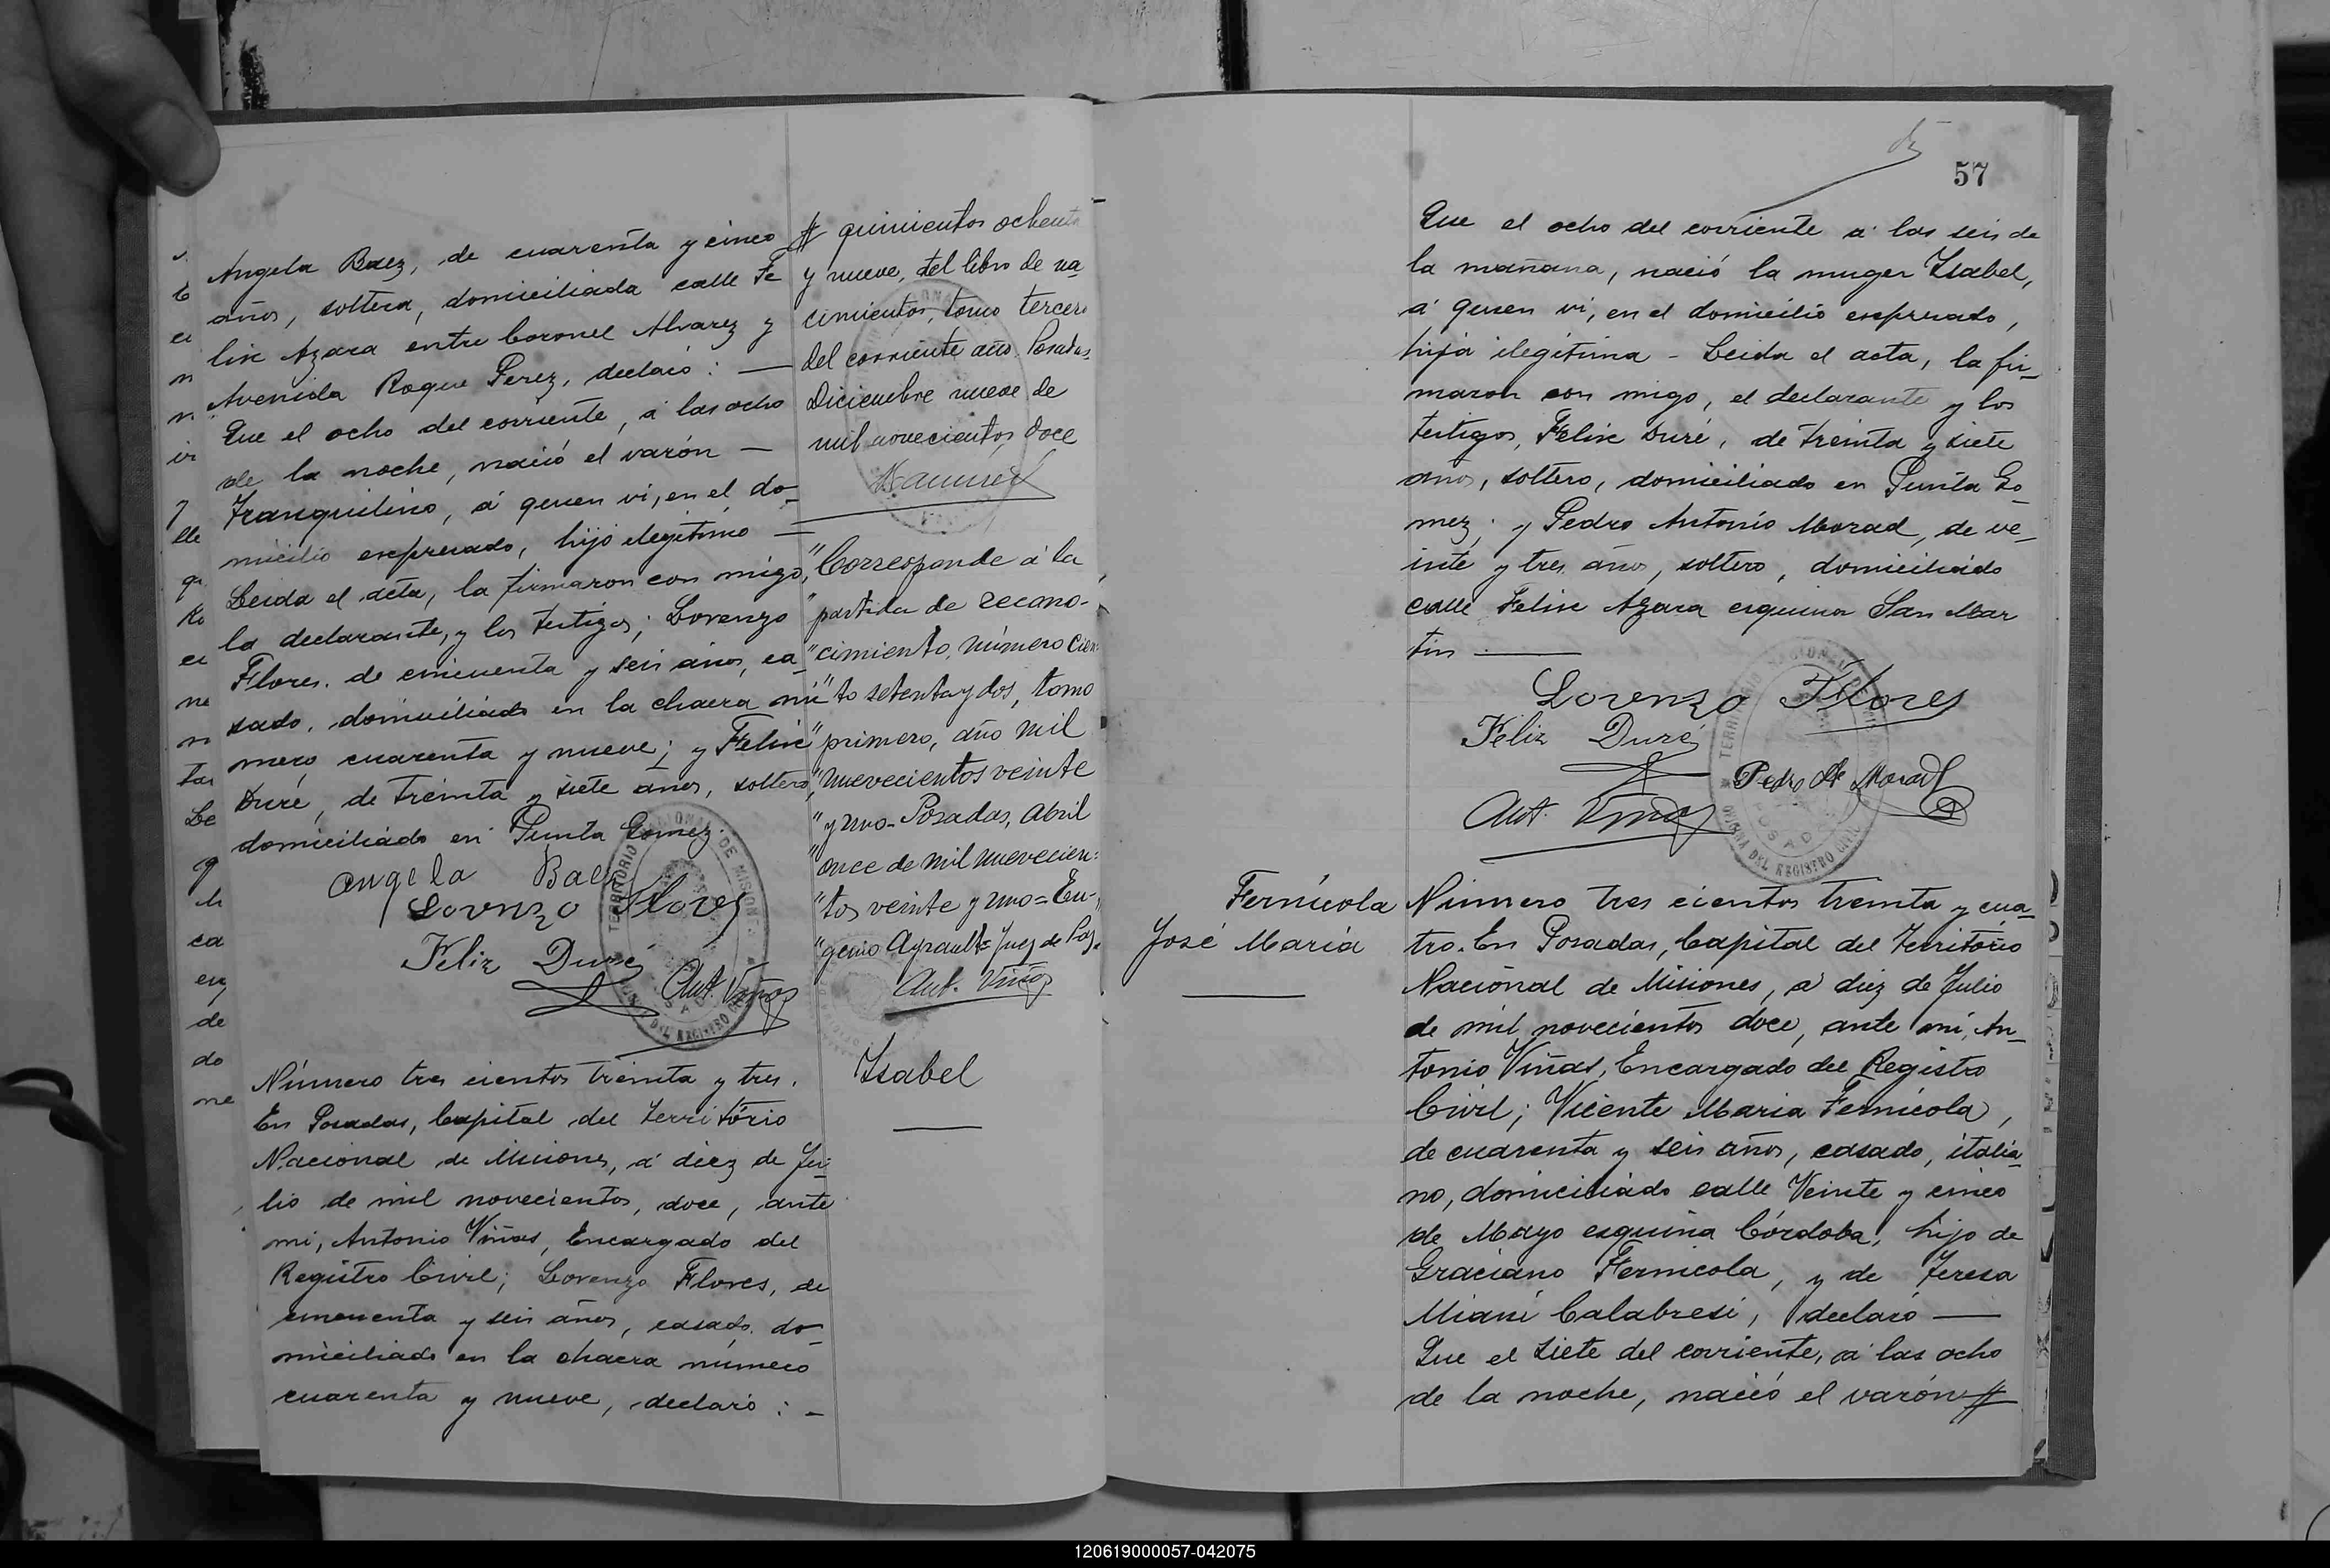 Angela Baez, de cuarenta y cinco
años, soltera, domiciliada calle Fe
lix Azara entre Coronel Alvarez y
Avenida Roque Perez, declaró: —
Que el ocho del corriente, á las ocho
de la noche, nació el varón —
Tranquilino, á quien vi, en el do-
micilio expresado, hijo ilegítimo —
Leida el acta, la firmaron con migo,
la declarante, y los testigos; Lorenzo
Flores, de cincuenta y seis años, ca
sado, domiciliado en la chacra nú
mero cuarenta y nueve; y Felix
Duré, de treinta y siete años, soltero,
domiciliado en Punta Gomez.
Angela Baez
Lorenzo Flores
Feliz Duré
Ant. Viñas
Número tres cientos treinta y tres.
En Posadas, Capital del Territorio
Nacional de Misiones, á diez de Ju-
lio de mil novecientos, doce, ante
mi, Antonio Viñas, Encargado del
Registro Civil; Lorenzo Flores, de
cincuenta y seis años, casado, do-
miciliado en la chacra número
cuarenta y nueve, declaró: -
# quinientos ochenta
y nueve, del libro de na
cimientos, tomo tercero
del corriente año. Posadas,
Diciembre nueve de
mil novecientos doce
"Corresponde á la
"partida de recono-
"cimiento, número cien-
"to setenta y dos, tomo
"primero, año mil
"nuevecientos veinte
"y uno- Posadas, Abril
"once de mil nuevecien-
"tos veinte y uno = Eu-
"genio Ayrault= Juez de Paz.
Ant. Viñas
Ysabel
57
Que el ocho del corriente á las seis de
la mañana, nació la muger Ysabel,
á quien vi, en el domicilio expresado,
hija ilegítima - Leida el acta, la fir-
maron con migo, el declarante y los
testigos, Felix Duré, de treinta y siete
años, soltero, domiciliado en Punta Go-
mez; y Pedro Antonio Morad, de ve-
inte y tres años, soltero, domiciliado
calle Felix Azara esquina San Mar
tin —
Lorenzo Flores
Feliz Duré
Pedro A Morad
Ant. Viñas
Fernícola
José María
Número tres cientos treinta y cua-
tro. En Posadas, Capital del Territorio
Nacional de Misiones, á diez de Julio
de mil novecientos doce, ante mi, An-
tonio Viñas, Encargado del Registro
Civil; Vicente Maria Fernícola,
de cuarenta y seis años, casado, italia-
no, domiciliado calle Veinte y cinco
de Mayo esquina Córdoba, hijo de
Graciano Fernicola, y de Teresa
Miani Calabresi, declaró —
Que el siete del corriente, á las ocho
de la noche, nació el varón #
120619000057-042075